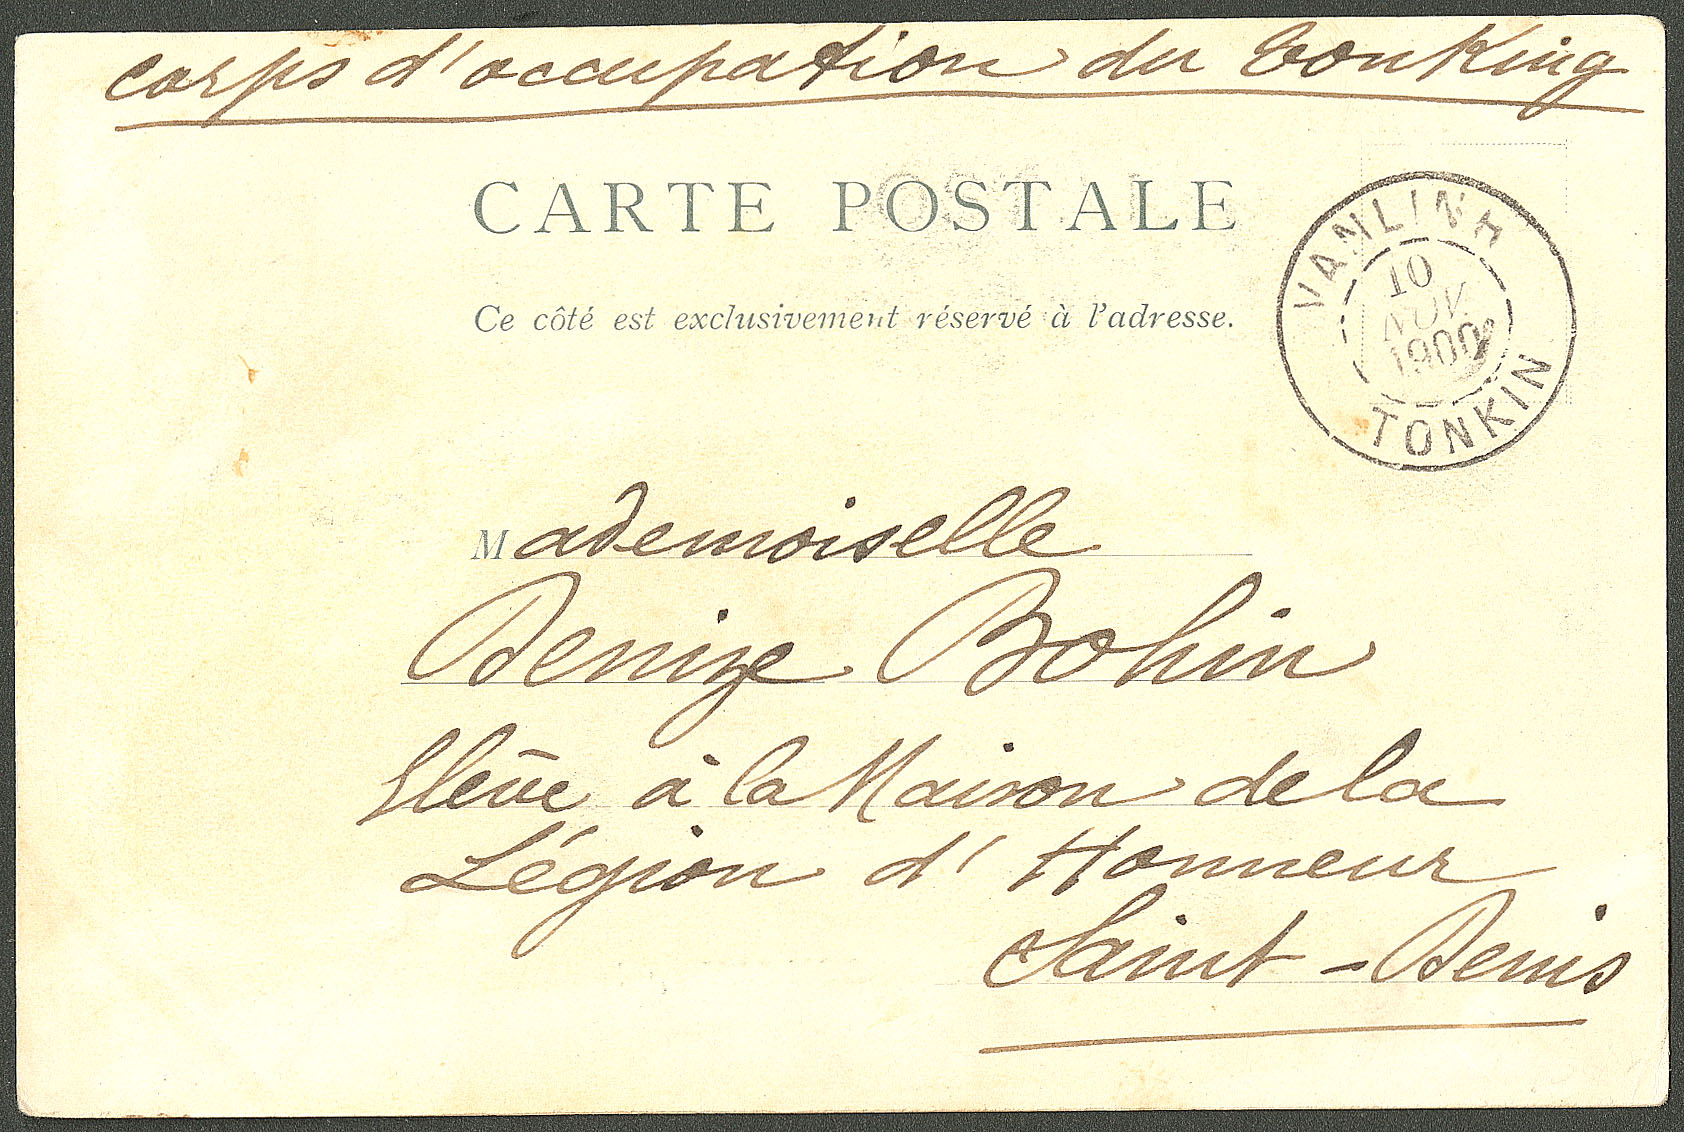 Corps d'occupation du Tonking
CARTE POSTALE
Ce côté est exclusivement réservé à l'adresse.
VANLINH
10
NOV
1900
TONKIN
Mademoiselle
Denize Bohin
Elève à la Maison de la
Légion d'Honneur
Saint-Denis